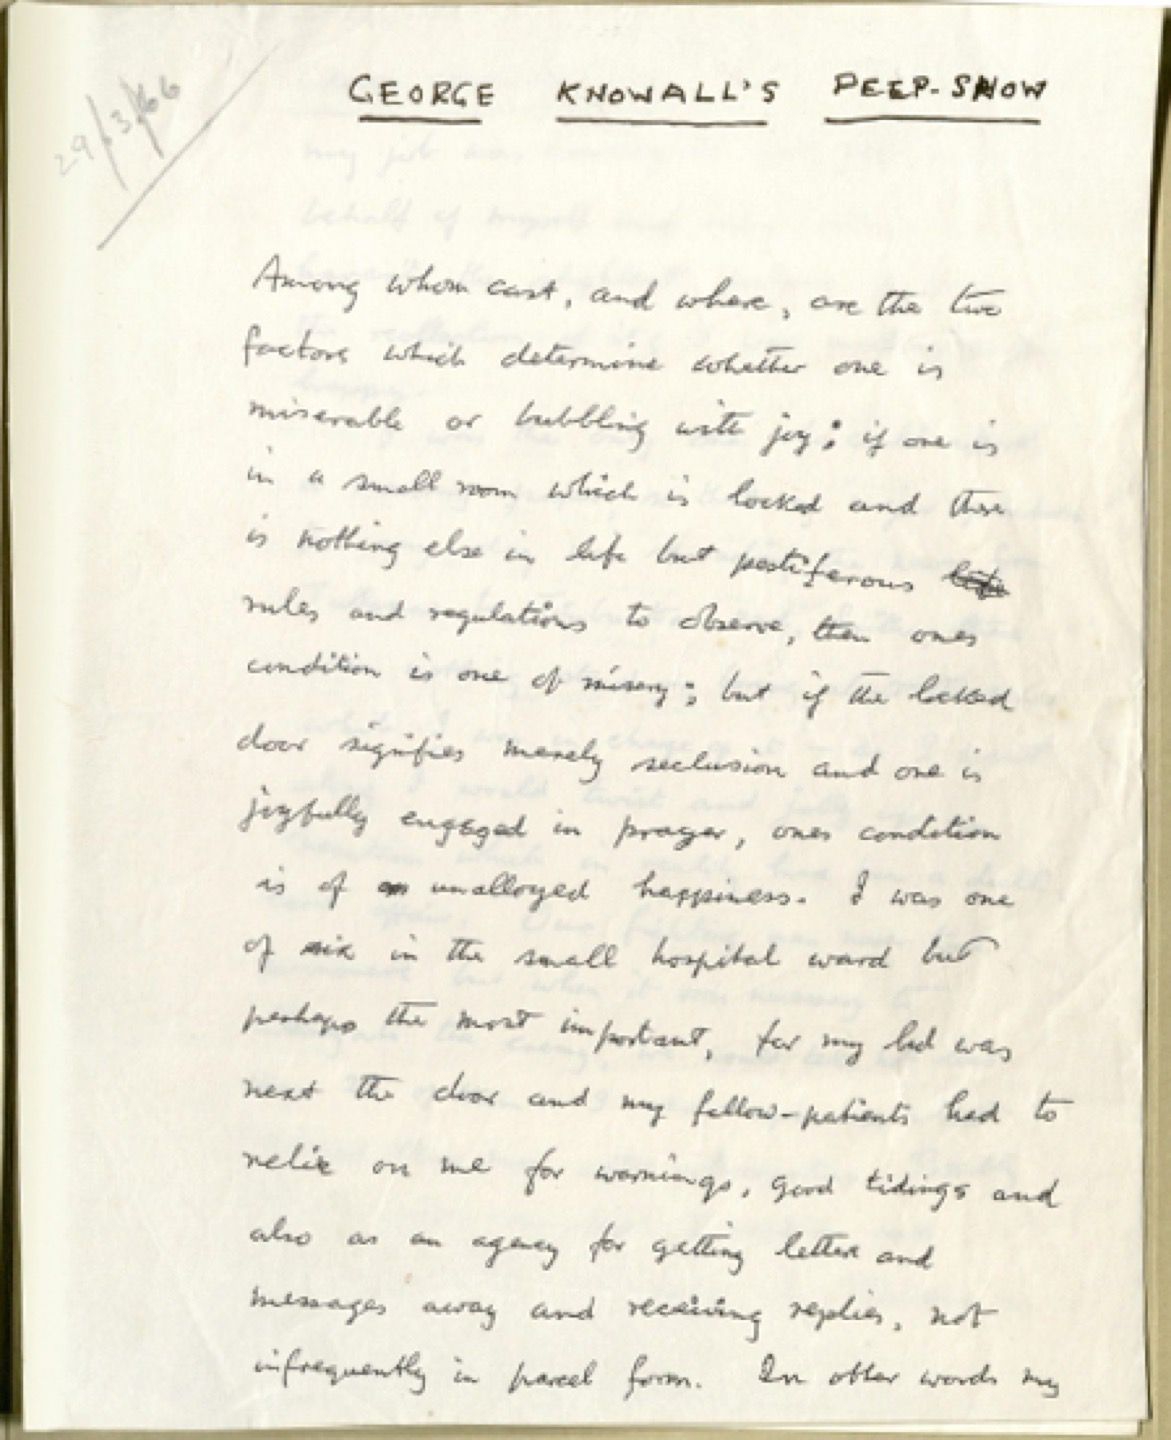 29/3/66
GEORGE KNOWALL'S PEEP-SHOW
Among whom cast, and where, are the two
factors which determine whether one is
miserable or bubbling with joy; if one is
in a small room which is locked and there
is nothing else in life but pestiferous life
rules and regulations to observe, then ones
condition is one of misery; but if the locked
door signifies merely seclusion and one is
joyfully engaged in prayer, ones condition
is of unalloyed happiness. I was one
of six in the small hospital ward but
perhaps the most important, for my bed was
next the door and my fellow-patients had to
relie on me for warnings, good tidings and
also as an agency for getting letters and
messages away and receiving replies, not
infrequently in parcel form. In other words my